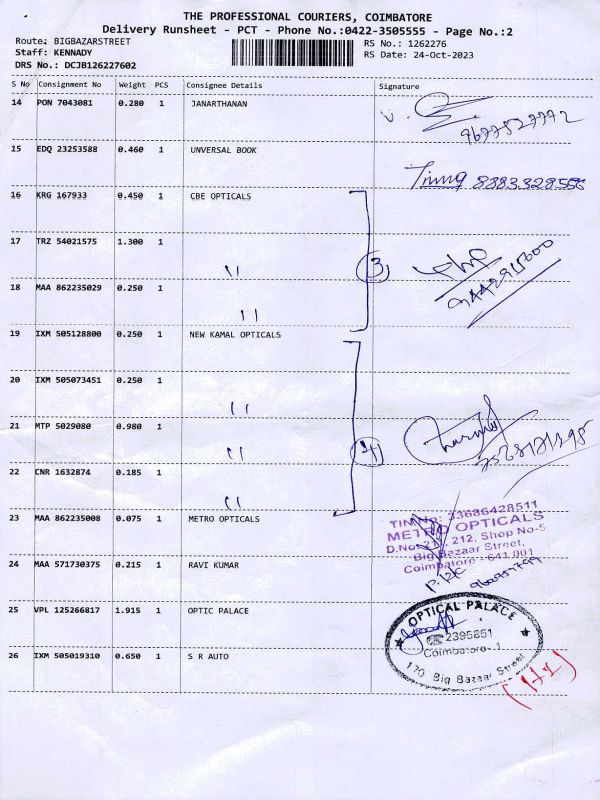 THE PROFESSIONAL COURIERS, COIMBATORE
Delivery Runsheet - PCT - Phone No.:0422-3505555 - Page No.:2
Route: BIGBAZARSTREET RS No.: 1262276
Staff: KENNADY RS Date: 24-Oct-2023
DRS No.: DCJB126227602
S No Consignment No Weight PCS Consignee Details Signature
14 PON 7043081 0.280 1 JANARTHANAN
15 EDQ 23253588 0.460 1 UNVERSAL BOOK
8883328556
16 KRG 167933 0.450 1 CBE OPTICALS
17 TRZ 54021575 1.300 1 "
3
18 MAA 862235029 0.250 1 "
19 IXM 505128800 0.250 1 NEW KAMAL OPTICALS
20 IXM 505073451 0.250 1 "
21 MTP 5029080 0.980 1 "
4
22 CNR 1632874 0.185 1 "
23 MAA 862235008 0.075 1 METRO OPTICALS
TIN No: 33686428511
METRO OPTICALS
D.No. 211, 212, Shop No-5
Big Bazaar Street,
Coimbatore - 641 001
24 MAA 571730375 0.215 1 RAVI KUMAR
25 VPL 125266817 1.915 1 OPTIC PALACE
OPTICAL PALACE
☎2395851
Coimbatore-1
170 Big Bazaar Street
26 IXM 505019310 0.650 1 S R AUTO